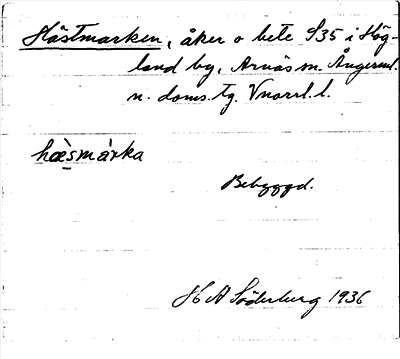 Hästmarken, åker o bete S35 i Hög-
land by, Arnäs sn. Ångerml.
n. doms.tg. Vnorrl. l.
hæ̀smàrka
Bebyggd.
H A Söderberg 1936